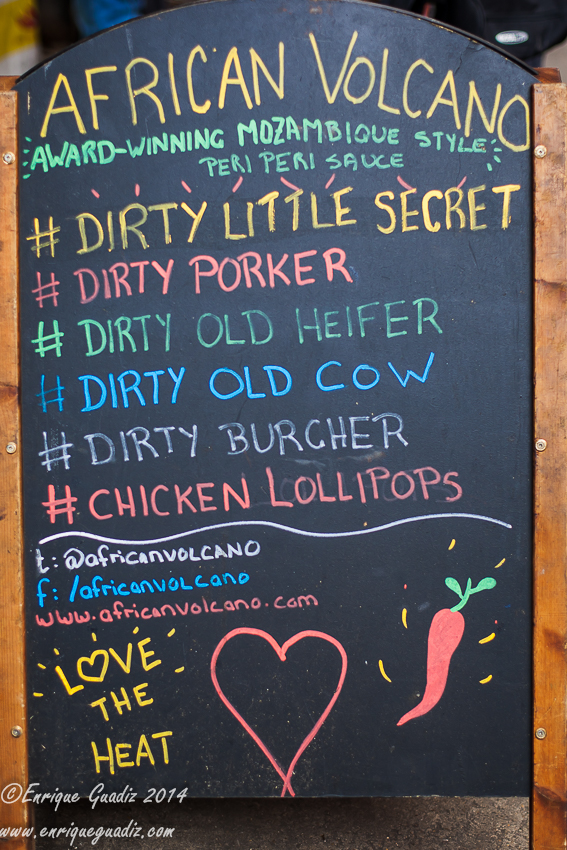 AFRICAN VOLCANO
AWARD-WINNING MOZAMBIQUE STYLE
PERI PERI SAUCE
# DIRTY LITTLE SECRET
# DIRTY PORKER
# DIRTY OLD HEIFER
# DIRTY OLD COW
# DIRTY BURCHER
# CHICKEN LOLLIPOPS
t: @africanVOLCANO
f: /africanvolcano
www.africanvolcano.com
LOVE
THE
HEAT
©Enrique Guadiz 2014
www.enriqueguadiz.com